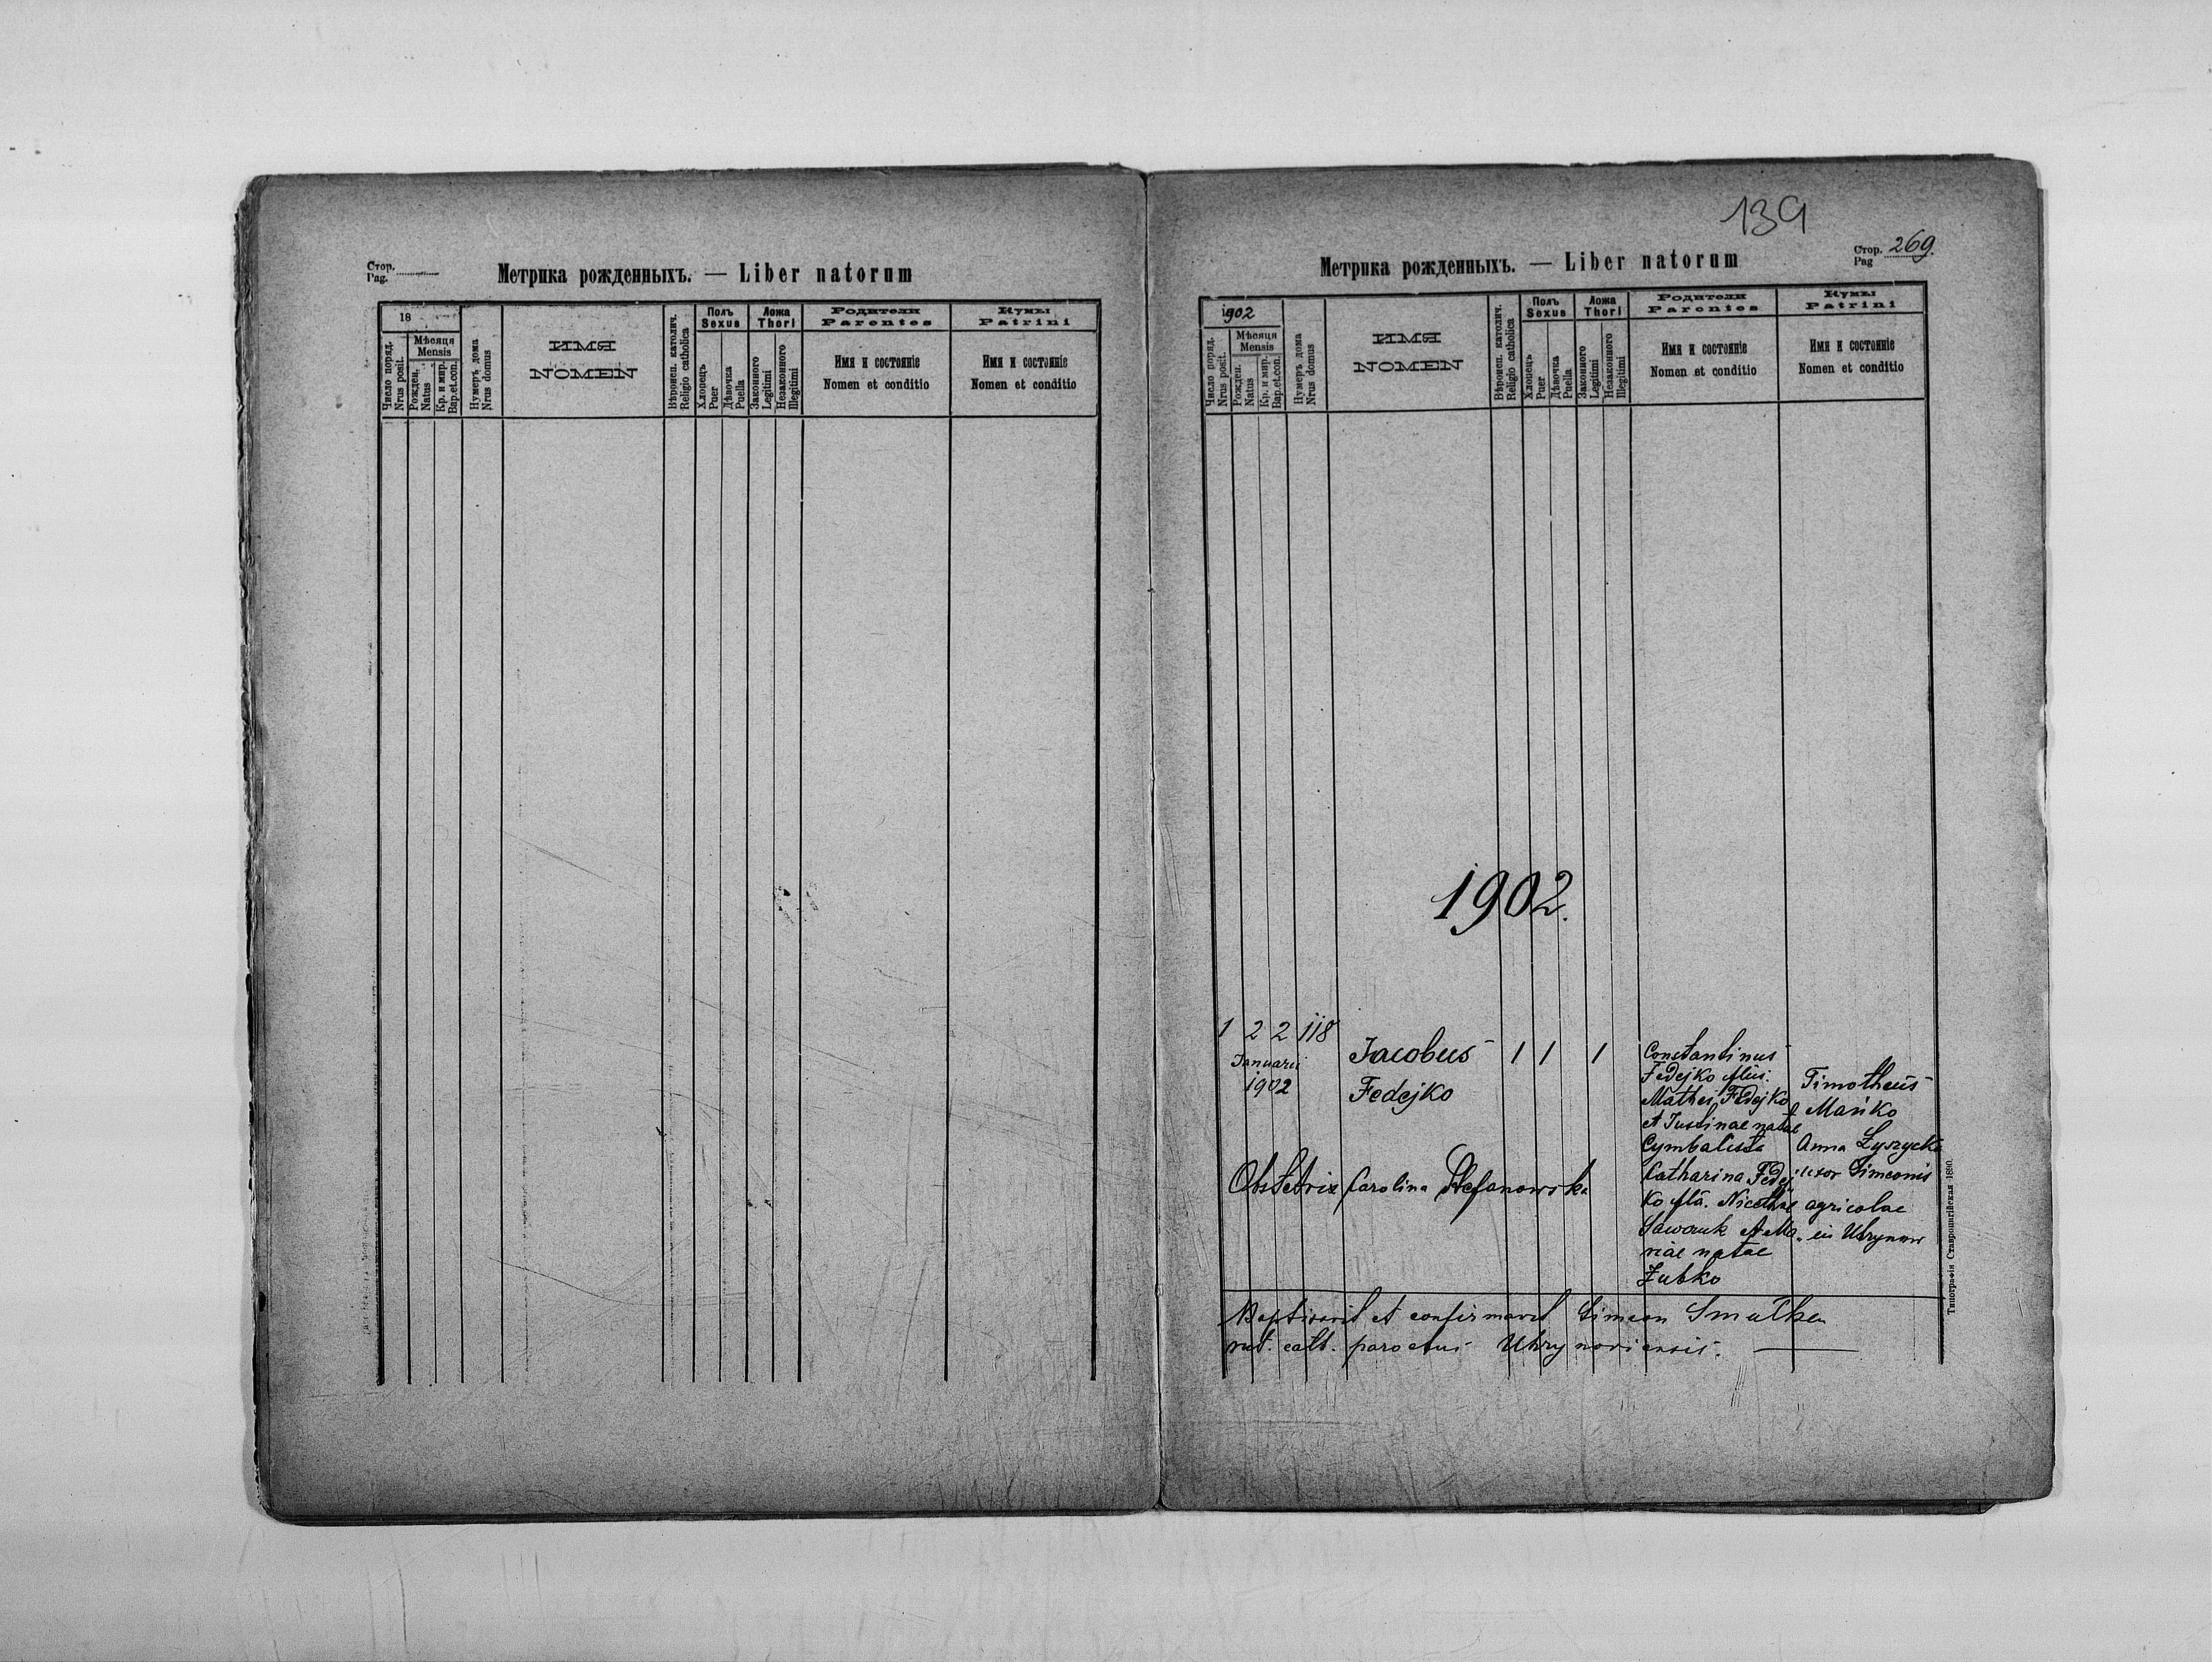 Стор.
Pag.
Метрика рожденныхъ. — Liber natorum
18
Число поряд.
Nrus posit.
Мѣсяця
Mensis
Рожден.
Natus
Кр. и мир.
Bap.et.con.
Нумеръ дома
Nrus domus
ИМЯ
NOMEN
Вѣроисп. католич.
Religio catholica
Полъ
Sexus
Хлопецъ
Puer
Дѣвочка
Puella
Ложа
Thori
Законного
Legitimi
Незаконного
Illegitimi
Родители
Parentes
Имя и состоянiе
Nomen et conditio
Кумы
Patrini
Имя и состоянiе
Nomen et conditio
139
Стор. 269.
Pag
Метрика рожденныхъ. — Liber natorum
1902
Число поряд.
Nrus posit.
Мѣсяця
Mensis
Рожден.
Natus
Кр. и мир.
Bap.et.con.
Нумеръ дома
Nrus domus
ИМЯ
NOMEN
Вѣроисп. католич.
Religio catholica
Полъ
Sexus
Хлопецъ
Puer
Дѣвочка
Puella
Ложа
Thori
Законного
Legitimi
Незаконного
Illegitimi
Родители
Parentes
Имя и состоянiе
Nomen et conditio
Кумы
Patrini
Имя и состоянiе
Nomen et conditio
1902.
1 2 2 118
Januarii
1902
Jacobus
Fedejko
1 1 1
Constantinus
Fedejko filius
Mathei Fedejko
et Justinae natae
Cymbalista
Catharina Fedej
ko filia. Nicetae
Sawczuk et Ma
riae natae
Zubko
Timotheus
Mańko
Anna Łyszycka
uxor Simeonis
agricolae
in Uhrynow
Obstetrix Carolina Stefanowska
Baptisavit et confirmavit Simeon
rut. cath. parochus Uhrynoviensis.
Типографія Ставропигійская 1890.